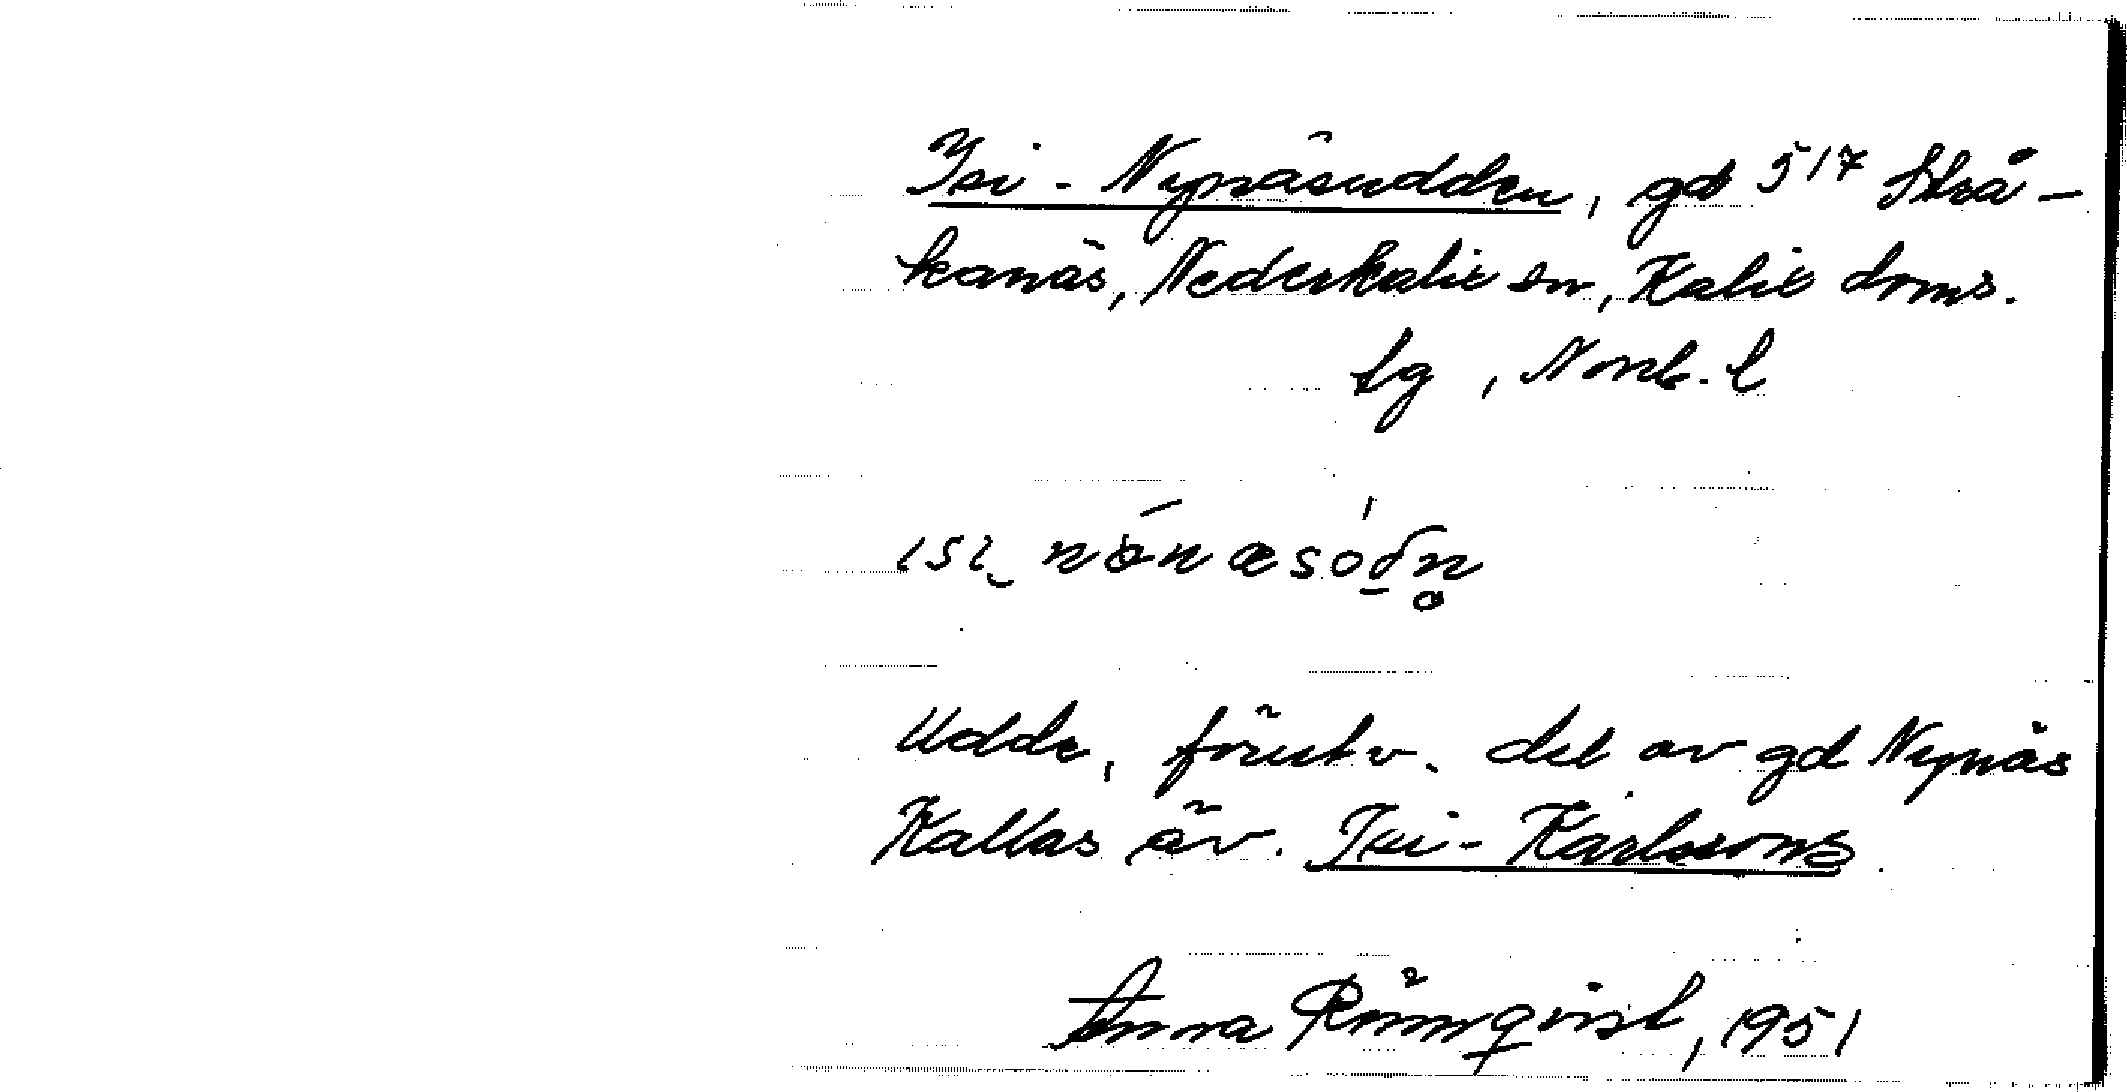 Isi-Nynäsudden, gd 5/17 Strå-
kanäs, Nederkalix sn, Kalix doms.
lg, Norrb. l
ɩsɩ nónæsódn̥
Udde, förutv. del av gd Nynäs
Kallas äv. Isi-Karlssons.
Anna Römqvist, 1951